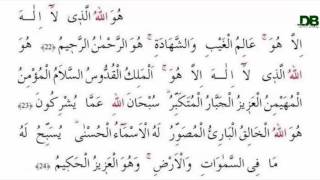 DB
هُوَ اللهُ الَّذِى لَآ اِلٰهَ
اِلَّا هُوَ ۚ عَالِمُ الْغَيْبِ وَالشَّهَادَةِ ۚ هُوَ الرَّحْمٰنُ الرَّحِيْمُ (22) هُوَ
اللهُ الَّذِى لَآ اِلٰهَ اِلَّا هُوَ ۚ اَلْمَلِكُ الْقُدُّوسُ السَّلَامُ الْمُؤْمِنُ
الْمُهَيْمِنُ الْعَزِيزُ الْجَبَّارُ الْمُتَكَبِّرُ ۚ سُبْحَانَ اللهِ عَمَّا يُشْرِكُونَ (23)
هُوَ اللهُ الْخَالِقُ الْبَارِئُ الْمُصَوِّرُ لَهُ الْاَسْمَآءُ الْحُسْنٰى ۚ يُسَبِّحُ لَهُ
مَا فِى السَّمٰوَاتِ وَالْاَرْضِ ۚ وَهُوَ الْعَزِيزُ الْحَكِيمُ (24)